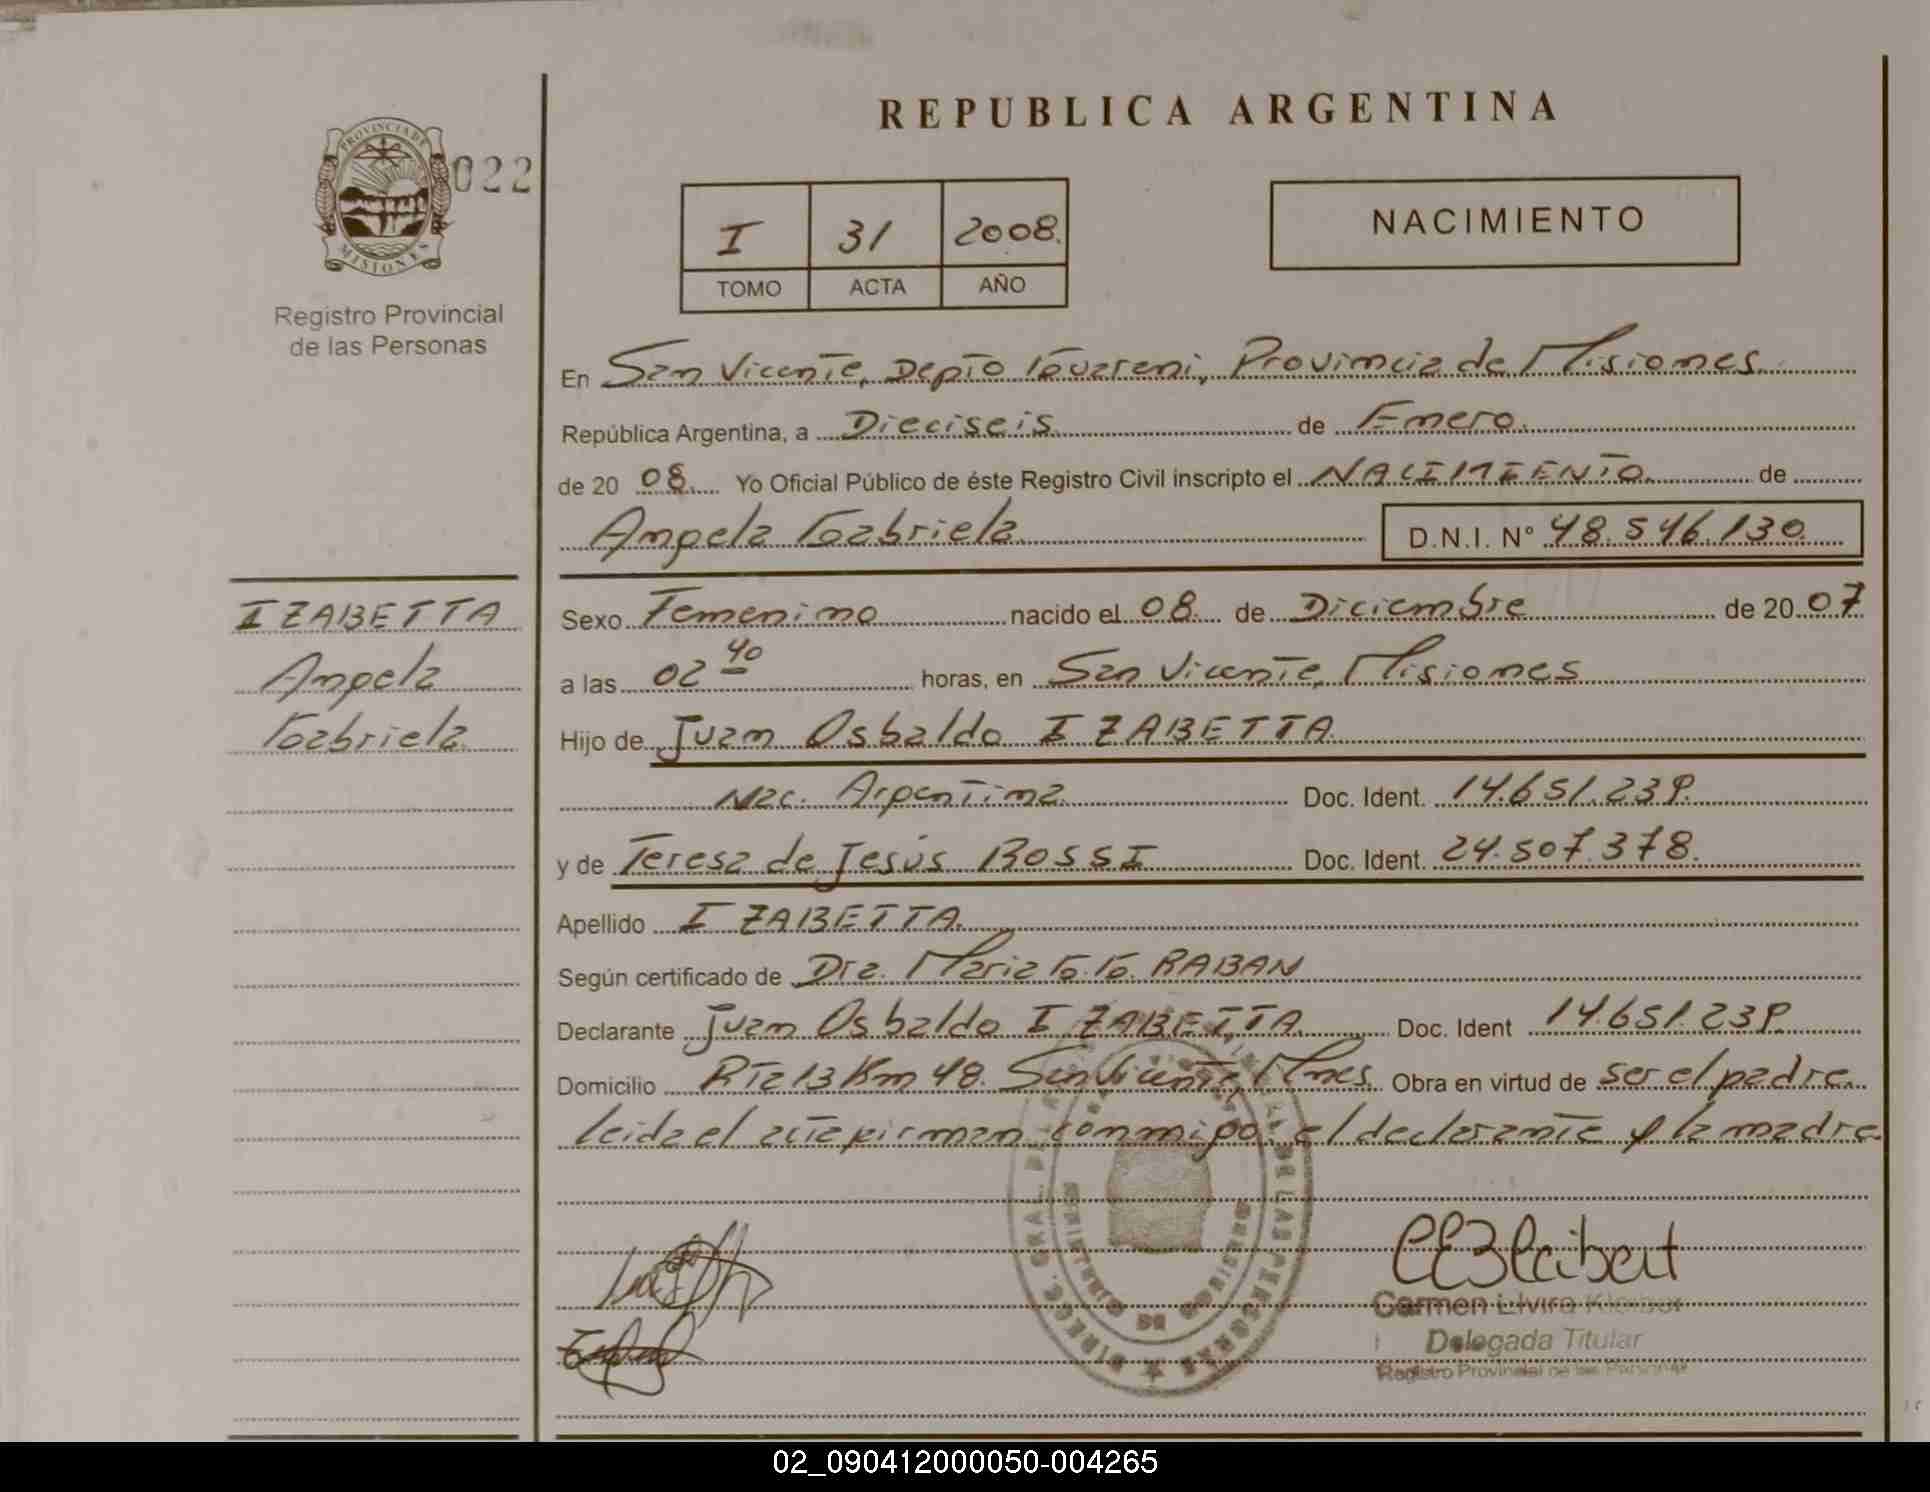 REPUBLICA ARGENTINA
PROVINCIA DE
MISIONES
022
Registro Provincial
de las Personas
I 31 2008.
TOMO ACTA AÑO
NACIMIENTO
En San Vicente, Depto Guarani, Provincia de Misiones.
República Argentina, a Dieciseis. de Enero.
de 20 08. Yo Oficial Público de éste Registro Civil inscripto el NACIMIENTO. de
Angela Gabriela. D.N.I. N° 48.546.130.
IZABETTA
Angela
Gabriela.
Sexo Femenino nacido el 08. de Diciembre de 20 07
a las 02 40 horas, en San Vicente, Misiones
Hijo de Juan Osbaldo IZABETTA.
Nac. Argentina. Doc. Ident. 14.651.239.
y de Teresa de Jesús ROSSI Doc. Ident. 24.507.378.
Apellido IZABETTA.
Según certificado de Dra. Maria G. G. RABAN
Declarante Juan Osbaldo IZABETTA. Doc. Ident 14.651.239.
Domicilio Rta 13 Km 48. San Vicente, Mnes. Obra en virtud de ser el padre.
leida el acta firman conmigo el declarante y la madre
DIRECC. GRAL. DE LAS PERSONAS
MINISTERIO DE GOBIERNO
Carmen Elvira Kleibert
Delegada Titular
Registro Provincial de las Personas
02_090412000050-004265